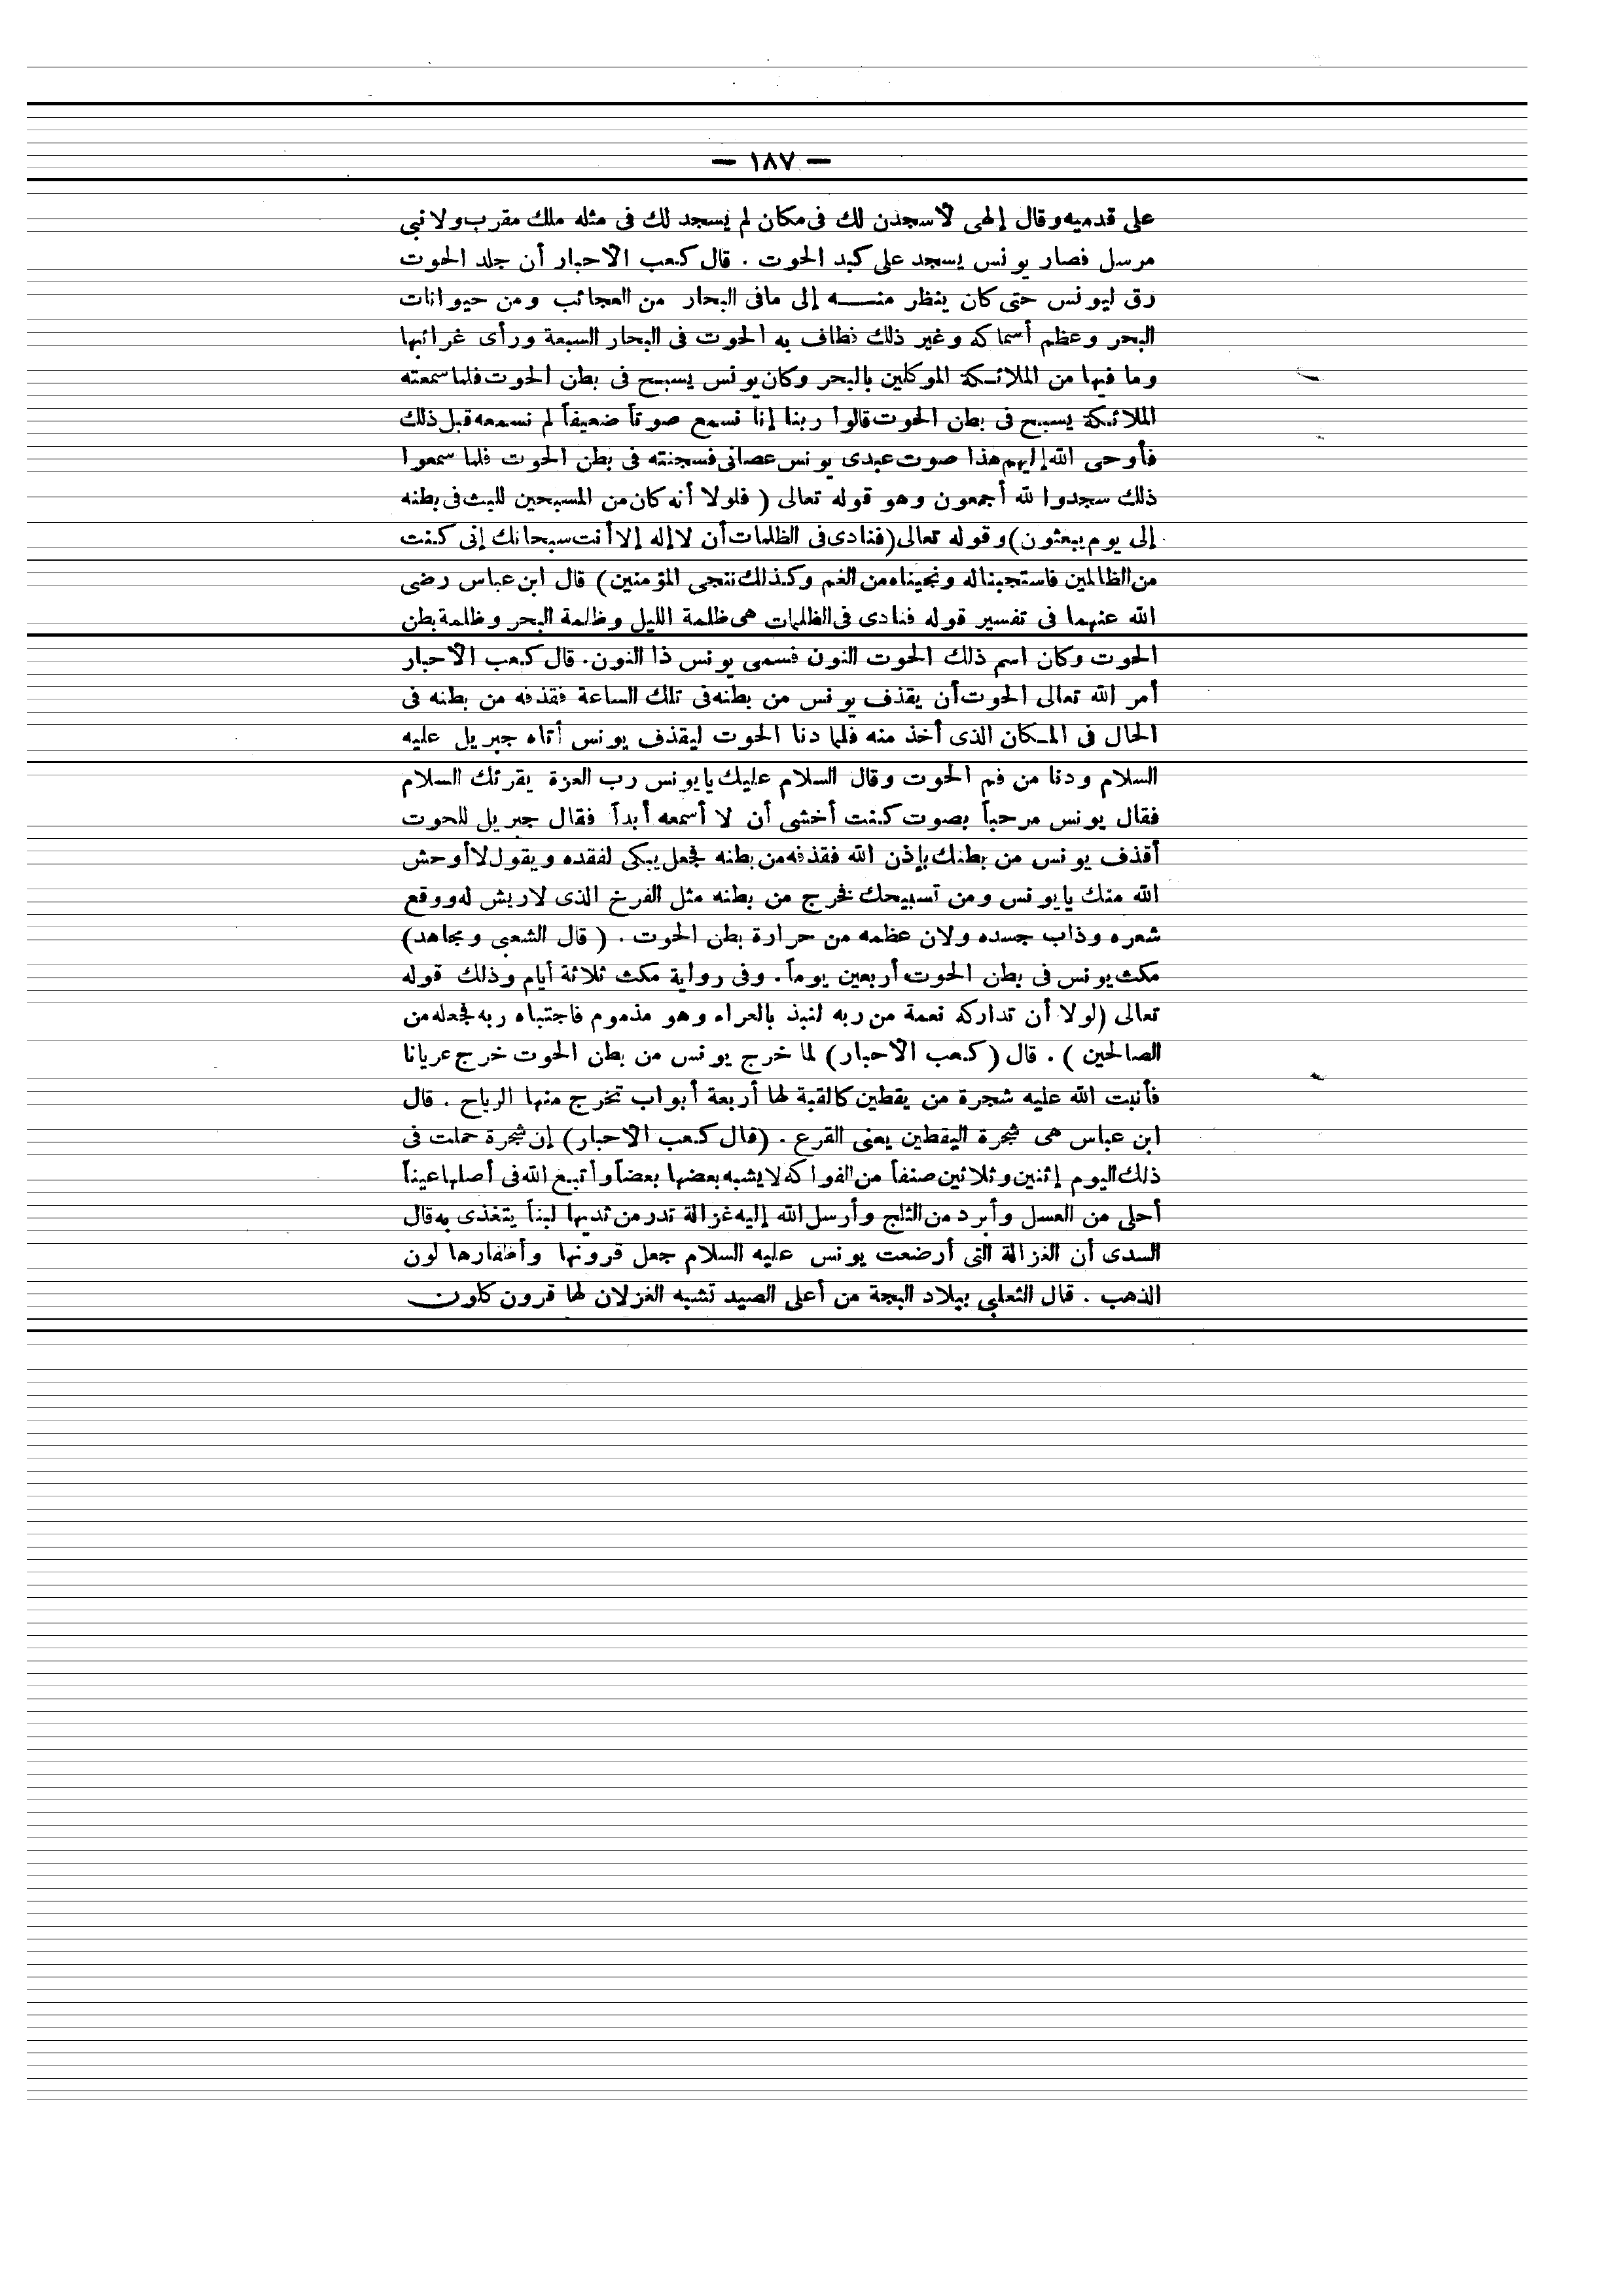 — ١٨٧ —
على قدميه وقال إلهى لأسجدن لك فى مكان لم يسجد لك فى مثله ملك مقرب ولا نبى
مرسل فصار يونس يسجد على كبد الحوت . قال كعب الاحبار أن جلد الحوت
رق ليونس حتى كان ينظر منه إلى مافى البحار من العجائب ومن حيوانات
البحر وعظم أسماكه وغير ذلك فطاف به الحوت فى البحار السبعة ورأى غرائبها
وما فيها من الملائكة الموكلين بالبحر وكان يونس يسبح فى بطن الحوت فلما سمعته
الملائكة يسبح فى بطن الحوت قالوا ربنا إنا نسمع صوتاً ضعيفاً لم نسمعه قبل ذلك
فأوحى الله إليهم هذا صوت عبدى يونس عصانى فسجنته فى بطن الحوت فلما سمعوا
ذلك سجدوا لله أجمعون وهو قوله تعالى ( فلولا أنه كان من المسبحين للبث فى بطنه
إلى يوم يبعثون) وقوله تعالى (فنادى فى الظلمات أن لا إله إلا أنت سبحانك إنى كنت
من الظالمين فاستجبنا له ونجيناه من الغم وكذلك ننجى المؤمنين) قال ابن عباس رضى
الله عنهما فى تفسير قوله فنادى فى الظلمات هى ظلمة الليل وظلمة البحر وظلمة بطن
الحوت وكان اسم ذلك الحوت النون فسمى يونس ذا النون . قال كعب الاحبار
أمر الله تعالى الحوت أن يقذف يونس من بطنه فى تلك الساعة فقذفه من بطنه فى
الحال فى المكان الذى أخذ منه فلما دنا الحوت ليقذف يونس أتاه جبريل عليه
السلام ودنا من فم الحوت وقال السلام عليك يايونس رب العزة يقرئك السلام
فقال يونس مرحباً بصوت كنت أخشى أن لا أسمعه أبداً فقال جبريل للحوت
أقذف يونس من بطنك بإذن الله فقذفه من بطنه فجعل يبكى لفقده ويقول لا أوحش
الله منك يايونس ومن تسبيحك فخرج من بطنه مثل الفرخ الذى لاريش له ووقع
شعره وذاب جسده ولان عظمه من حرارة بطن الحوت . ( قال الشعبى ومجاهد)
مكث يونس فى بطن الحوت أربعين يوماً . وفى رواية مكث ثلاثة أيام وذلك قوله
تعالى (لولا أن تداركه نعمة من ربه لنبذ بالعراء وهو مذموم فاجتباه ربه فجعله من
الصالحين ) . قال ( كعب الاحبار) لما خرج يونس من بطن الحوت خرج عريانا
فأنبت الله عليه شجرة من يقطين كالقبة لها أربعة أبواب تخرج منها الرياح . قال
ابن عباس هى شجرة اليقطين يعنى القرع . (قال كعب الاحبار) إن شجرة حملت فى
ذلك اليوم إثنين وثلاثين صنفاً من الفواكه لا يشبه بعضها بعضاً وأتبع الله فى أصلها عيناً
أحلى من العسل وأبرد من الثلج وأرسل الله إليه غزالة تدر من ثديها لبناً يتغذى به قال
السدى أن الغزالة التى أرضعت يونس عليه السلام جعل قرونها وأظفارها لون
الذهب . قال الثعلبى ببلاد البجة من أعلى الصيد تشبه الغزلان لها قرون كلون